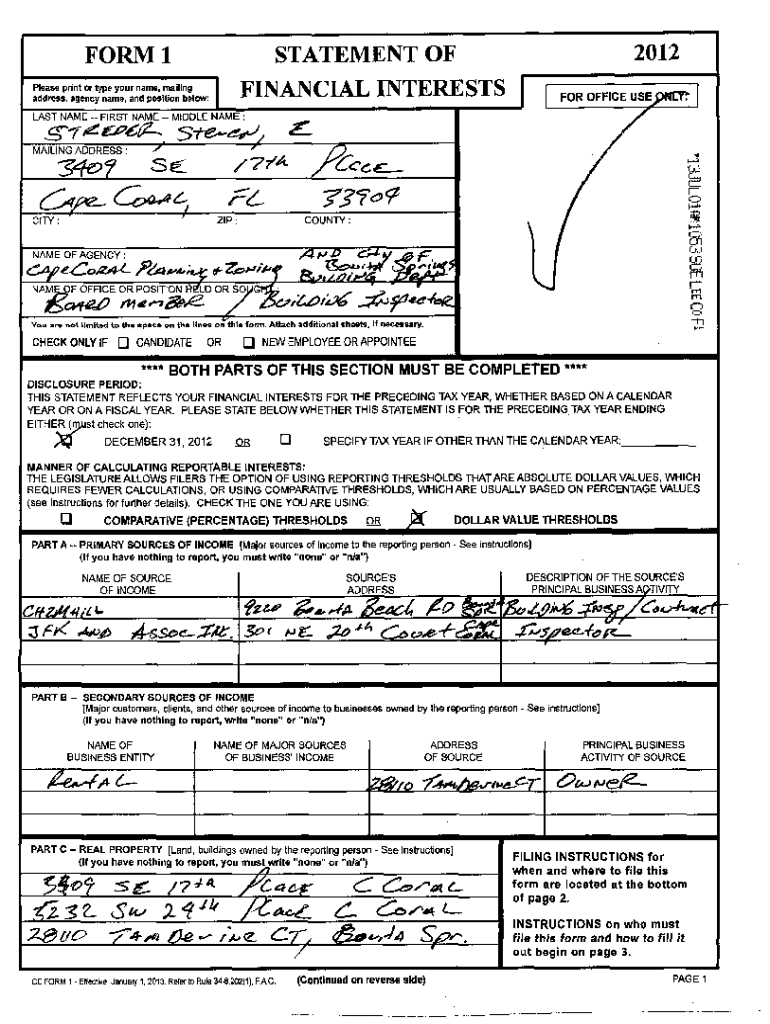 FORM 1
STATEMENT OF
FINANCIAL INTERESTS
2012
Please print or type your name, mailing
address, agency name, and position below:
FOR OFFICE USE ONLY:
LAST NAME -- FIRST NAME -- MIDDLE NAME :
STREDER, Steven, E
MAILING ADDRESS :
3409 SE 17th Place
Cape Coral, FL 33904
CITY : ZIP : COUNTY :
NAME OF AGENCY :
Cape Coral Planning + Zoning AND City of Bonita Springs Building Dept
NAME OF OFFICE OR POSITION HELD OR SOUGHT
Board member / Building Inspector
You are not limited to the space on the lines on this form. Attach additional sheets, if necessary.
CHECK ONLY IF ☐ CANDIDATE OR ☐ NEW EMPLOYEE OR APPOINTEE
**** BOTH PARTS OF THIS SECTION MUST BE COMPLETED ****
DISCLOSURE PERIOD:
THIS STATEMENT REFLECTS YOUR FINANCIAL INTERESTS FOR THE PRECEDING TAX YEAR, WHETHER BASED ON A CALENDAR
YEAR OR ON A FISCAL YEAR. PLEASE STATE BELOW WHETHER THIS STATEMENT IS FOR THE PRECEDING TAX YEAR ENDING
EITHER (must check one):
☒ DECEMBER 31, 2012 OR ☐ SPECIFY TAX YEAR IF OTHER THAN THE CALENDAR YEAR:
MANNER OF CALCULATING REPORTABLE INTERESTS:
THE LEGISLATURE ALLOWS FILERS THE OPTION OF USING REPORTING THRESHOLDS THAT ARE ABSOLUTE DOLLAR VALUES, WHICH
REQUIRES FEWER CALCULATIONS, OR USING COMPARATIVE THRESHOLDS, WHICH ARE USUALLY BASED ON PERCENTAGE VALUES
(see instructions for further details). CHECK THE ONE YOU ARE USING:
☐ COMPARATIVE (PERCENTAGE) THRESHOLDS OR ☒ DOLLAR VALUE THRESHOLDS
PART A -- PRIMARY SOURCES OF INCOME [Major sources of income to the reporting person - See instructions]
(If you have nothing to report, you must write "none" or "n/a")
NAME OF SOURCE OF INCOME
SOURCE'S ADDRESS
DESCRIPTION OF THE SOURCE'S PRINCIPAL BUSINESS ACTIVITY
CH2MHILL 9220 Bonita Beach RD Building Insp / Contract
JFK AND Assoc Inc. 301 NE 20th Court Cape Coral Inspector
PART B -- SECONDARY SOURCES OF INCOME
[Major customers, clients, and other sources of income to businesses owned by the reporting person - See instructions]
(If you have nothing to report, write "none" or "n/a")
NAME OF BUSINESS ENTITY
NAME OF MAJOR SOURCES OF BUSINESS' INCOME
ADDRESS OF SOURCE
PRINCIPAL BUSINESS ACTIVITY OF SOURCE
Rental 28110 Tamberine CT Owner
PART C -- REAL PROPERTY [Land, buildings owned by the reporting person - See instructions]
(If you have nothing to report, you must write "none" or "n/a")
3409 SE 17th Place C Coral
5232 SW 29th Place C Coral
28110 Tamberine CT, Bonita Spr.
FILING INSTRUCTIONS for
when and where to file this
form are located at the bottom
of page 2.
INSTRUCTIONS on who must
file this form and how to fill it
out begin on page 3.
CE FORM 1 - Effective January 1, 2013. Refer to Rule 34-8.202(1), F.A.C.
(Continued on reverse side)
PAGE 1